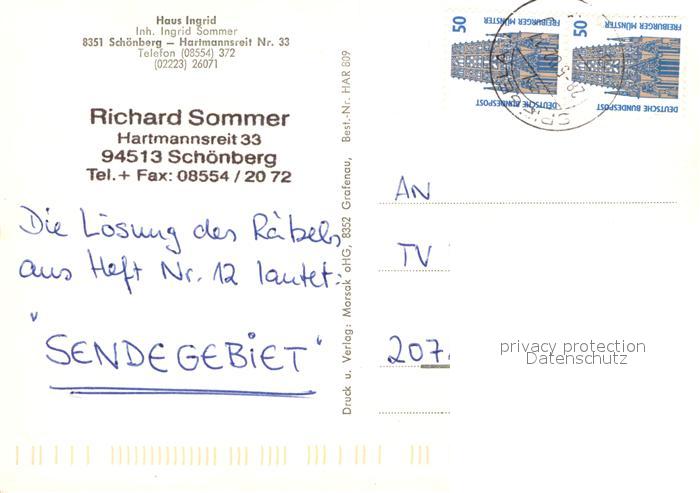 Haus Ingrid
Inh. Ingrid Sommer
8351 Schönberg — Hartmannsreit Nr. 33
Telefon (08554) 372
(02223) 26071
Richard Sommer
Hartmannsreit 33
94513 Schönberg
Tel.+ Fax: 08554 / 20 72
Die Lösung des Rätsels
aus Heft Nr. 12 lautet:
"SENDEGEBIET"
Druck u. Verlag: Morsak oHG, 8352 Grafenau, Best.-Nr. HAR 809
50
FREIBURGER MÜNSTER
DEUTSCHE BUNDESPOST
50
FREIBURGER MÜNSTER
DEUTSCHE BUNDESPOST
AN
TV
207.
privacy protection
Datenschutz